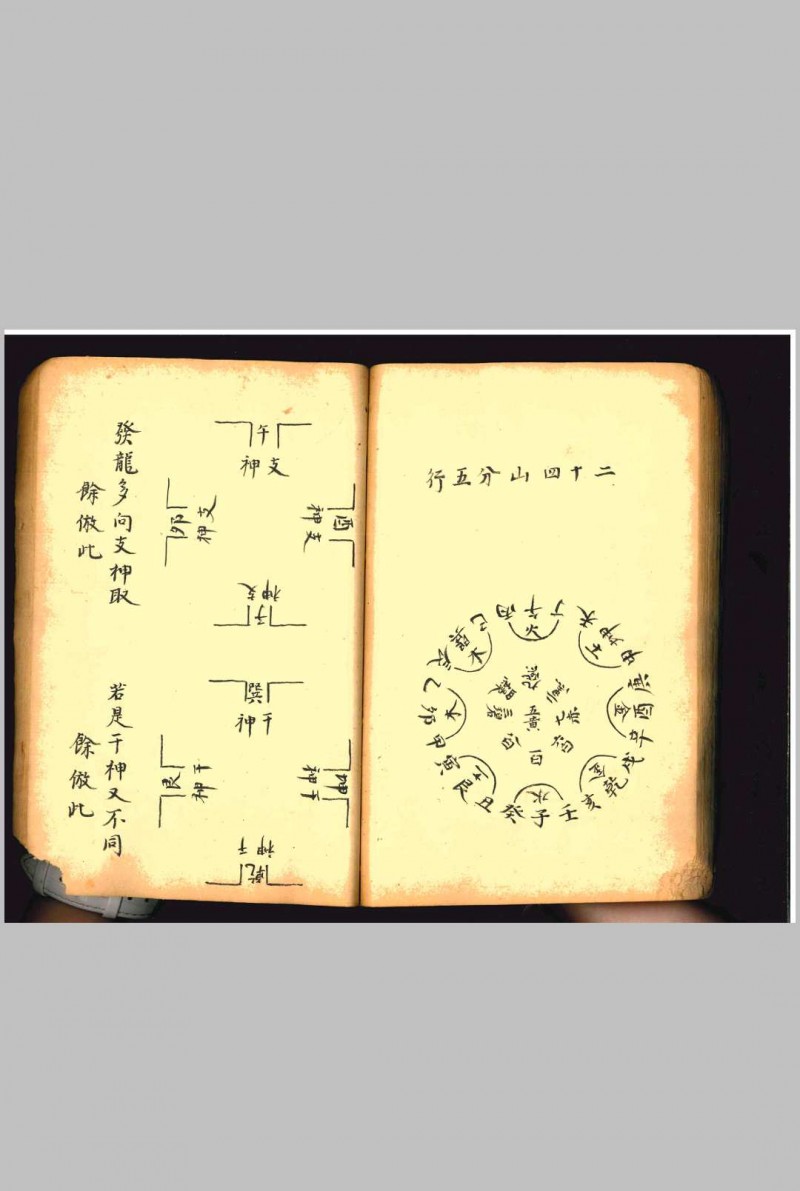 二十四山分五行
巳 丙午丁 未坤申
巽 火 土
辰 木 庚
乙 木 金 酉
卯 辛
甲 戌
寅 土 金 乾
艮 水 亥
丑 癸子壬
五黃
七赤
一白
午
支神
酉
支神
卯
支神
子
支神
發龍多向支神取
餘倣此
巽
干神
坤
干神
艮
干神
乾
干神
若是干神又不同
餘倣此